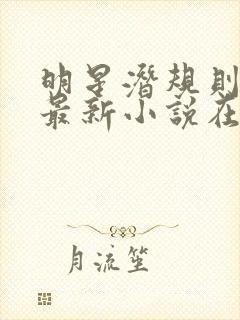 明星潜规则
最新小说在
月流笙